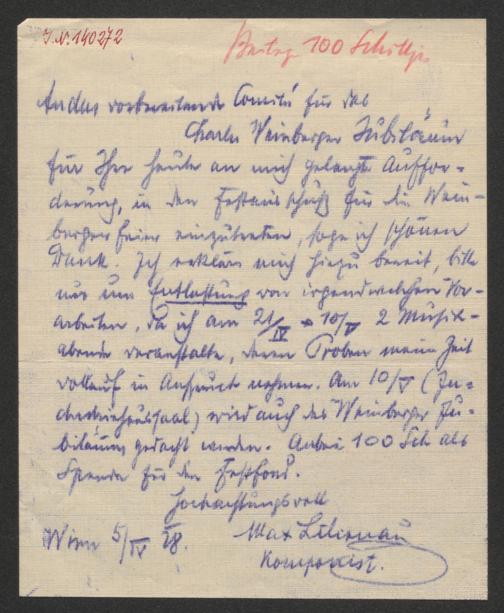 J.N. 140272
Beitrag 100 Schillg
An das vorbereitende Comité für das
Charles Weinberger Jubiläum
für Ihre heute an mich gelangte Auffor-
derung, in den Festausschuß für die Wein-
berger Feier einzutreten, sage ich schönen
Dank. Ich erkläre mich hiezu bereit, bitte
nur um Entlastung von irgendwelchen Vor-
arbeiten, da ich am 21/IV 10/V 2 Musik-
abende veranstalte, deren Proben meine Zeit
vollauf in Anspruch nehmen. Am 10/V (In-
dustriehaussaal) wird auch des Weinberger Ju-
biläums gedacht werden. Anbei 100 Sch als
Spende für den Festfond.
Hochachtungsvoll
Wien 5/IV 28. Max Lilienau
Komponist.